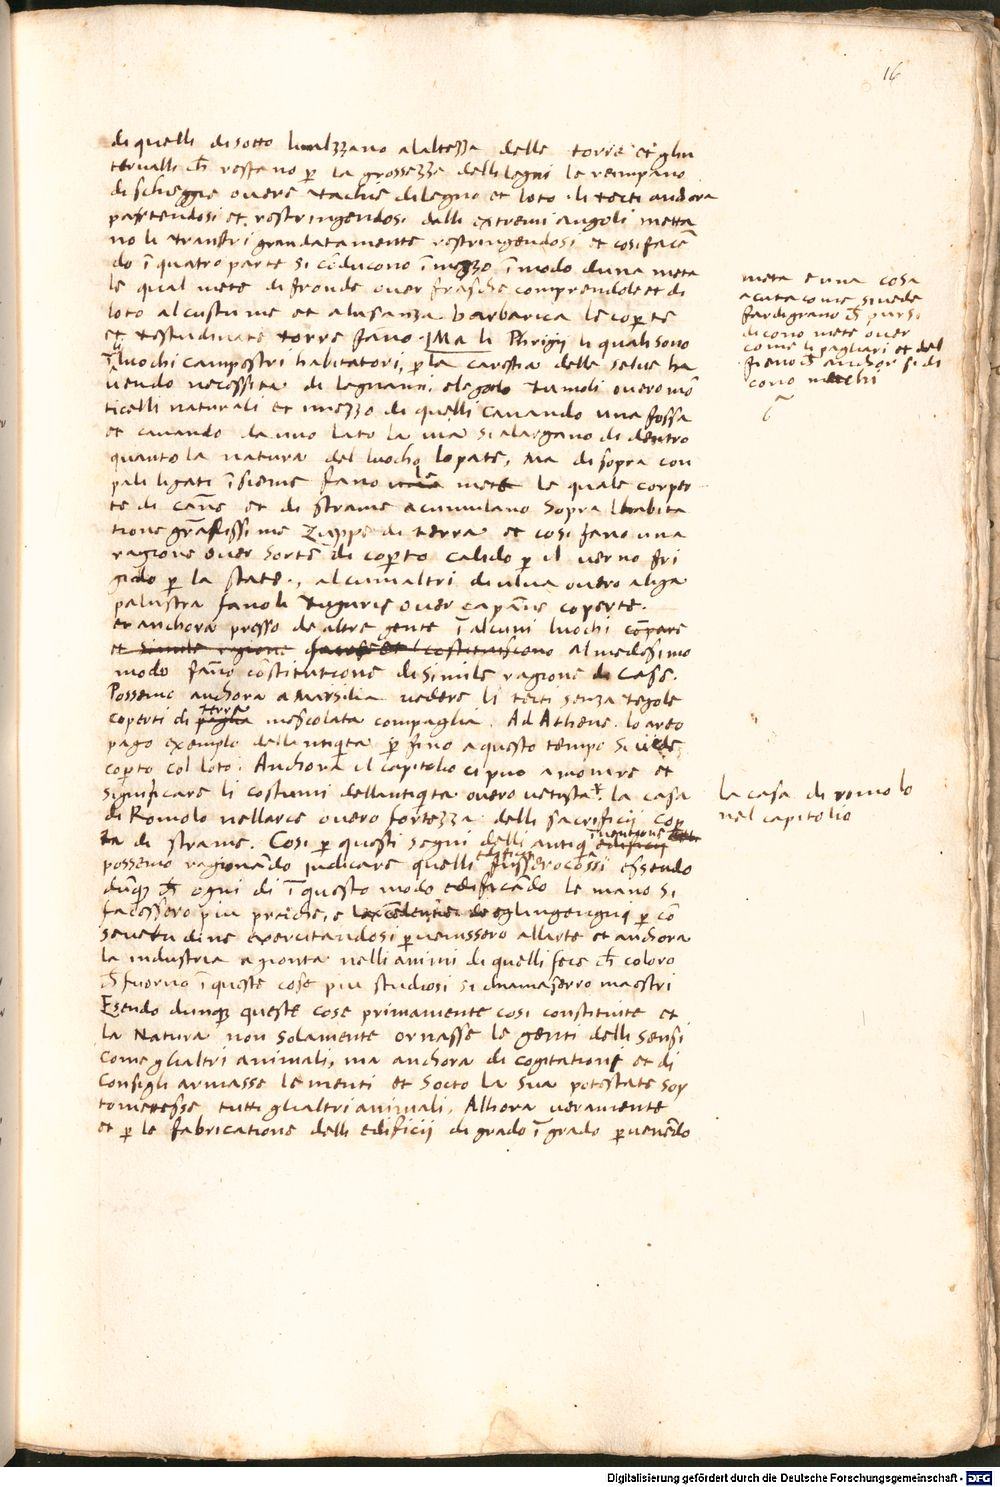 16
di quelli di sotto lunalzzano alaltezza delle torre et gliīn
tervalli ch̄ restano p̱ la grossezza delli legni le rempano
di scheggie overe tachie di legno et loto. li tecti anchora
partendosi et restringendosi dalli extremi angoli metta
no li transtri grandatamente restringendosi et cosi facē
do ī quatro parte si cōducono ī mezzo ī modo duna meta
le qual mete di fronde over frasche comprendole et di
loto al custume et alusanza barbarica le cop̱te
et testudinate torre fan̄o. Ma li Phrigii li quali sono
ī li luochi campestri habitatori, p̱ la carestia delle selve ha
vendo necessita di legnami, elegeno tumoli overo mō
ticelli naturali et mezzo di quelli cavando una fossa
et cavando da uno lato la via si alargano di dentro
quanto la natura del luocho lopate, Ma di sopra con
pali ligati īsieme fano mete le quale coper
te di can̄e et di strame acumulano sopra lhabita
tione grādissime zuppe di terra et cosi fano una
ragione over sorte di cop̱to calido p̱ il verno fri
gido p̱ la state., alcuni altri di ulva overo aliga
palustra fano li tugurie over capan̄e coperte.
et anchora presso de altre gente ī alcuni luochi cōpare
et simile ragione al medesimo
modo fan̄o cōstitutione de simile ragione di case.
Possemo anchora a Marsilia vedere li tecti senza tegole
coperti di terra paglia mescolata com paglia. Ad Athene. lo areo
pago exemplo della ntiq̱ta p̱ fino a questo tempo si vede
cop̱to col loto. Anchora il capitolio ci puo amonire et
significare li costumi dellantiq̱ta overo vetusta. la casa
di Romolo nellarce overo fortezza delli sacrificii cop̱
ta di strame. Cosi p̱ questi segni delli antiq̱ inventione edificii
possemo ragionādo iudicare quelli edificii fussero cossi essendo
dunq̱ ch̄ ogni di ī questo modo edificādo le mano si
facessero piu pratiche, e gli ingengnii p̱ cō
suetudine exercitandosi p̱venissero allarte et anchora
la industria agionta nelli animi di quelli fece ch̄ coloro
ch̄ fuorno ī queste cose piu studiosi si chiamaserro maestri
Esendo dunq̱ queste cose primamente cosi constituite et
la Natura non solamente ornasse le genti delli sensi
come glialtri animali, ma anchora di cogitatione et di
consigli armasse le menti et socto la sua potestate sop
tometesse tutti glialtri animali, Alhora veramente
et p̱ le fabricatione delli edificii di grado ī grado p̱venēdo
meta e una cosa
acuta come si vede
far di grano ch̄ pur si
dicono mete over
come li pagliari et del
fieno ch̄ anchor si di
cono metchi
la casa di romolo
nel capitolio
Digitalisierung gefördert durch die Deutsche Forschungsgemeinschaft - DFG